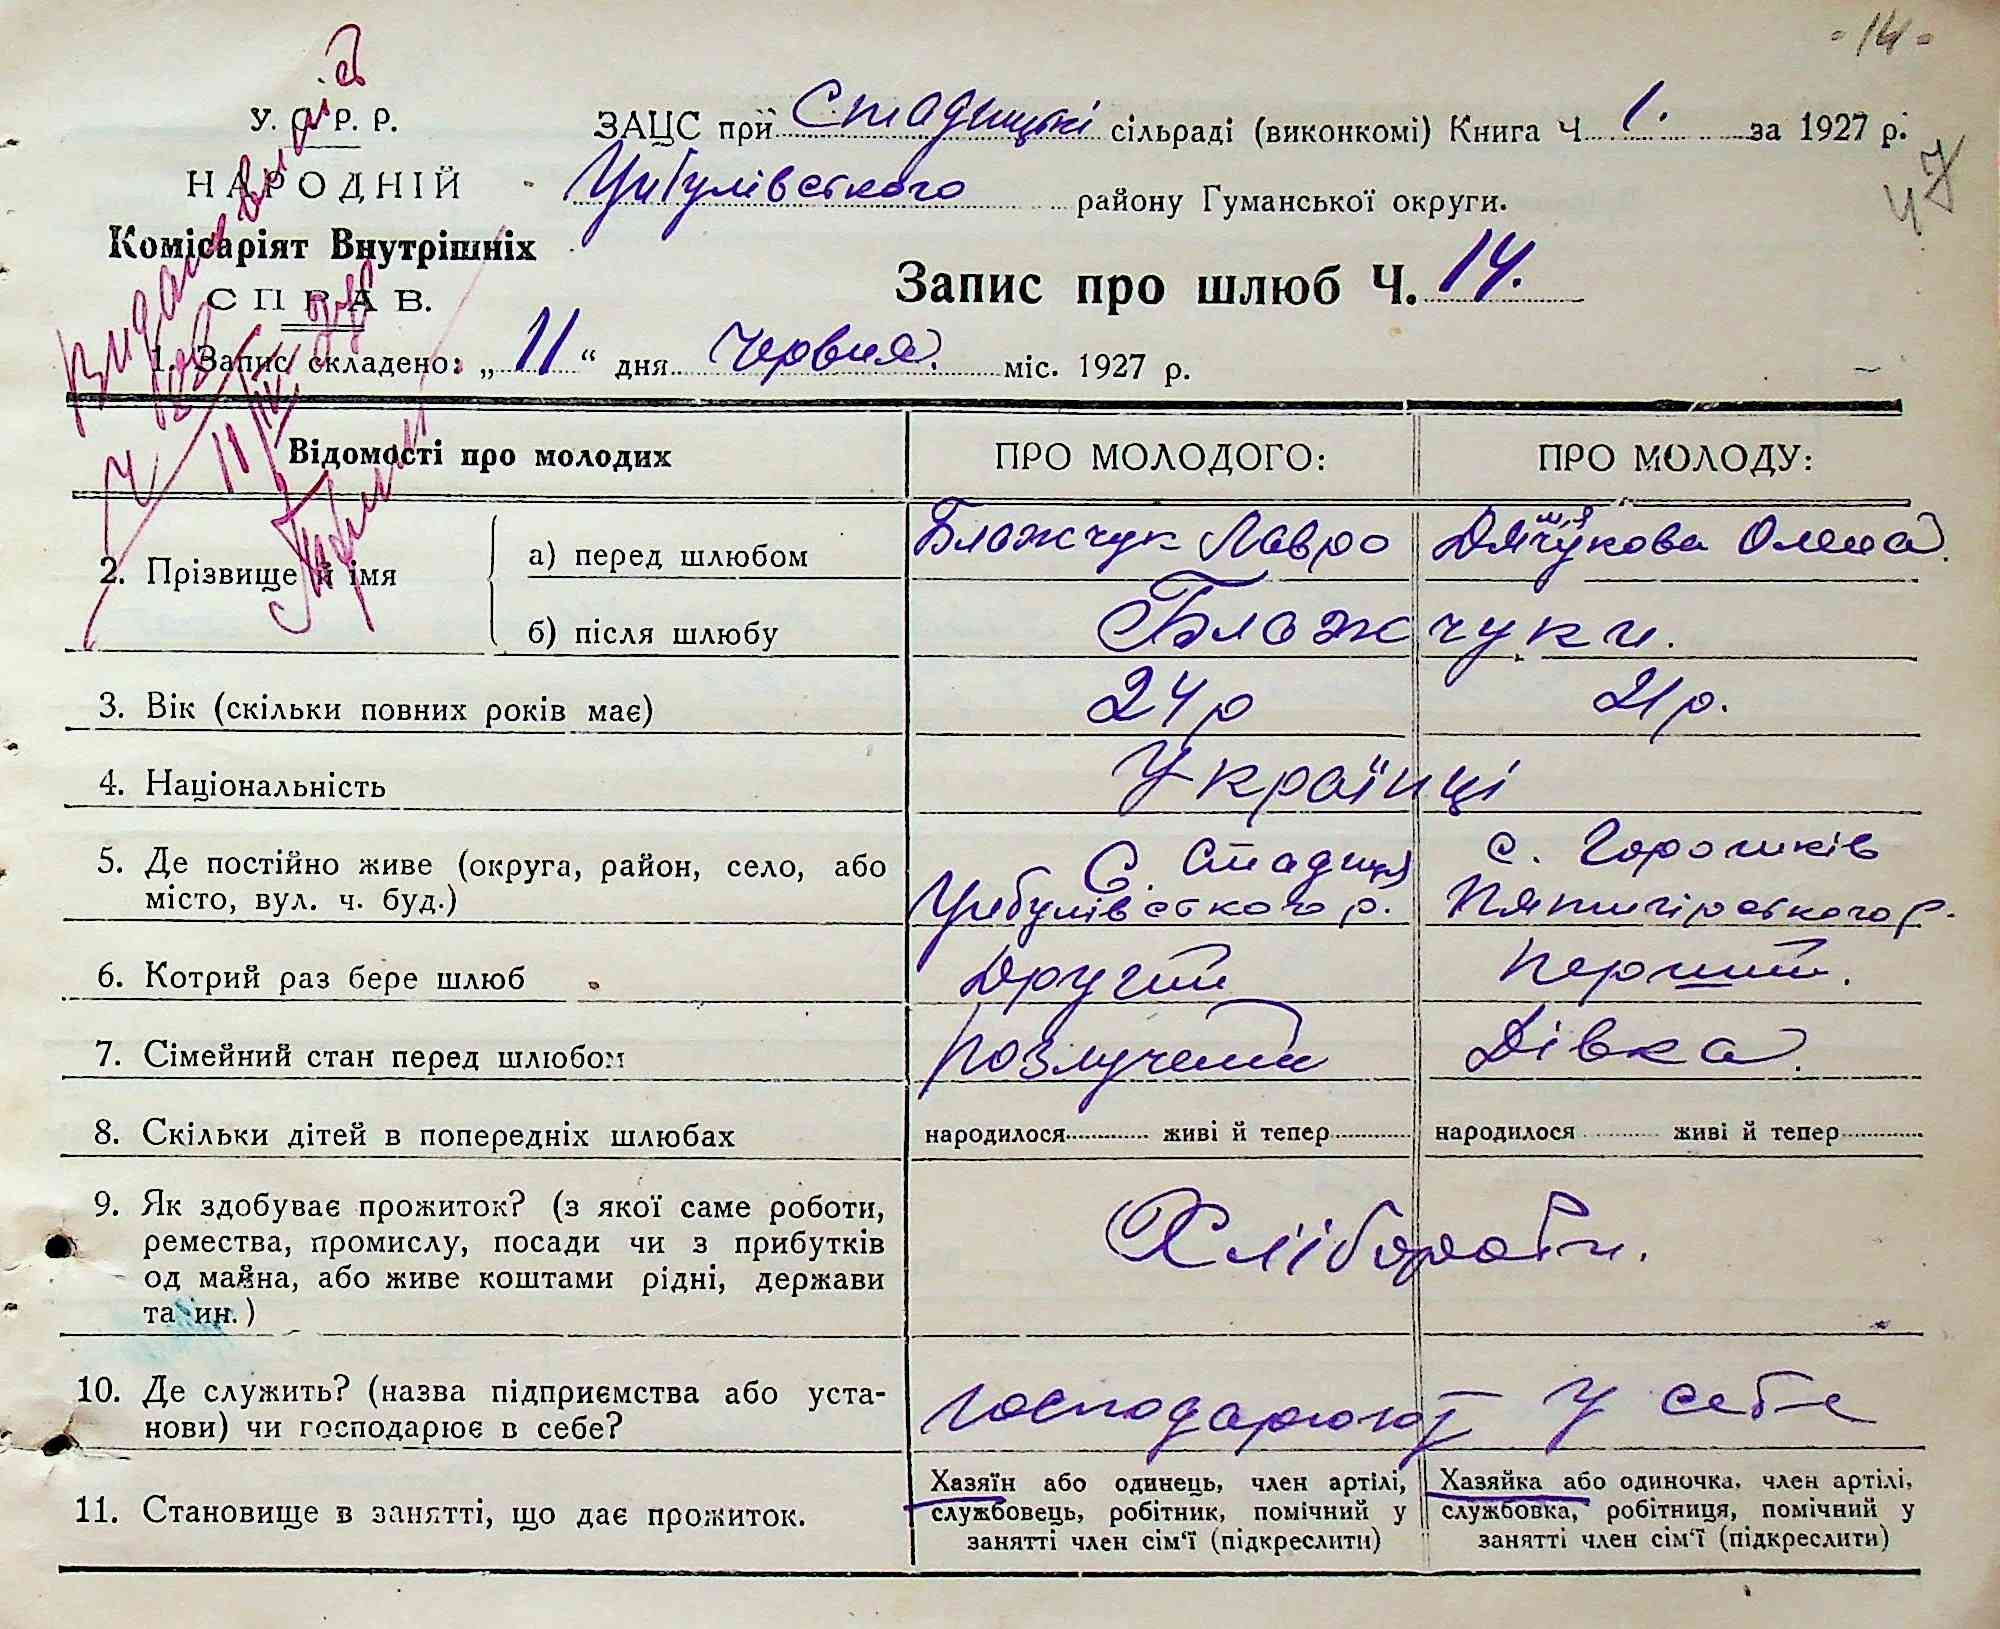 - 14 -
У. С. Р. Р.
НАРОДНІЙ
Комісаріят Внутрішніх
СПРАВ.
ЗАЦС при Стадницькі сільраді (виконкомі) Книга Ч 1. за 1927 р.
Цибулівського району Гуманської округи.
47
Запис про шлюб Ч. 14.
1. Запис складено: „ 11 “ дня Червня. міс. 1927 р.
11/IV
Відомості про молодих
ПРО МОЛОДОГО:
ПРО МОЛОДУ:
2. Прізвище й імя
а) перед шлюбом
Блажчук Лавро
Олена
б) після шлюбу
Блажчуки.
3. Вік (скільки повних років має)
24 р
21 р.
4. Національність
Українці
5. Де постійно живе (округа, район, село, або
місто, вул. ч. буд.)
С. Стадниця
Цибулівського р.
с. Горошків
Пятигірського р.
6. Котрий раз бере шлюб
Другий
Перший.
7. Сімейний стан перед шлюбом
Розлучений
Дівка.
8. Скільки дітей в попередніх шлюбах
народилося живі й тепер
народилося живі й тепер
9. Як здобуває прожиток? (з якої саме роботи,
ремества, промислу, посади чи з прибутків
од майна, або живе коштами рідні, держави
та ин.)
Хлібороби.
10. Де служить? (назва підприємства або уста-
нови) чи господарює в себе?
Господарюют у себе
11. Становище в занятті, що дає прожиток.
Хазяїн або одинець, член артілі,
службовець, робітник, помічний у
занятті член сім‘ї (підкреслити)
Хазяйка або одиночка, член артілі,
службовка, робітниця, помічний у
занятті член сім‘ї (підкреслити)